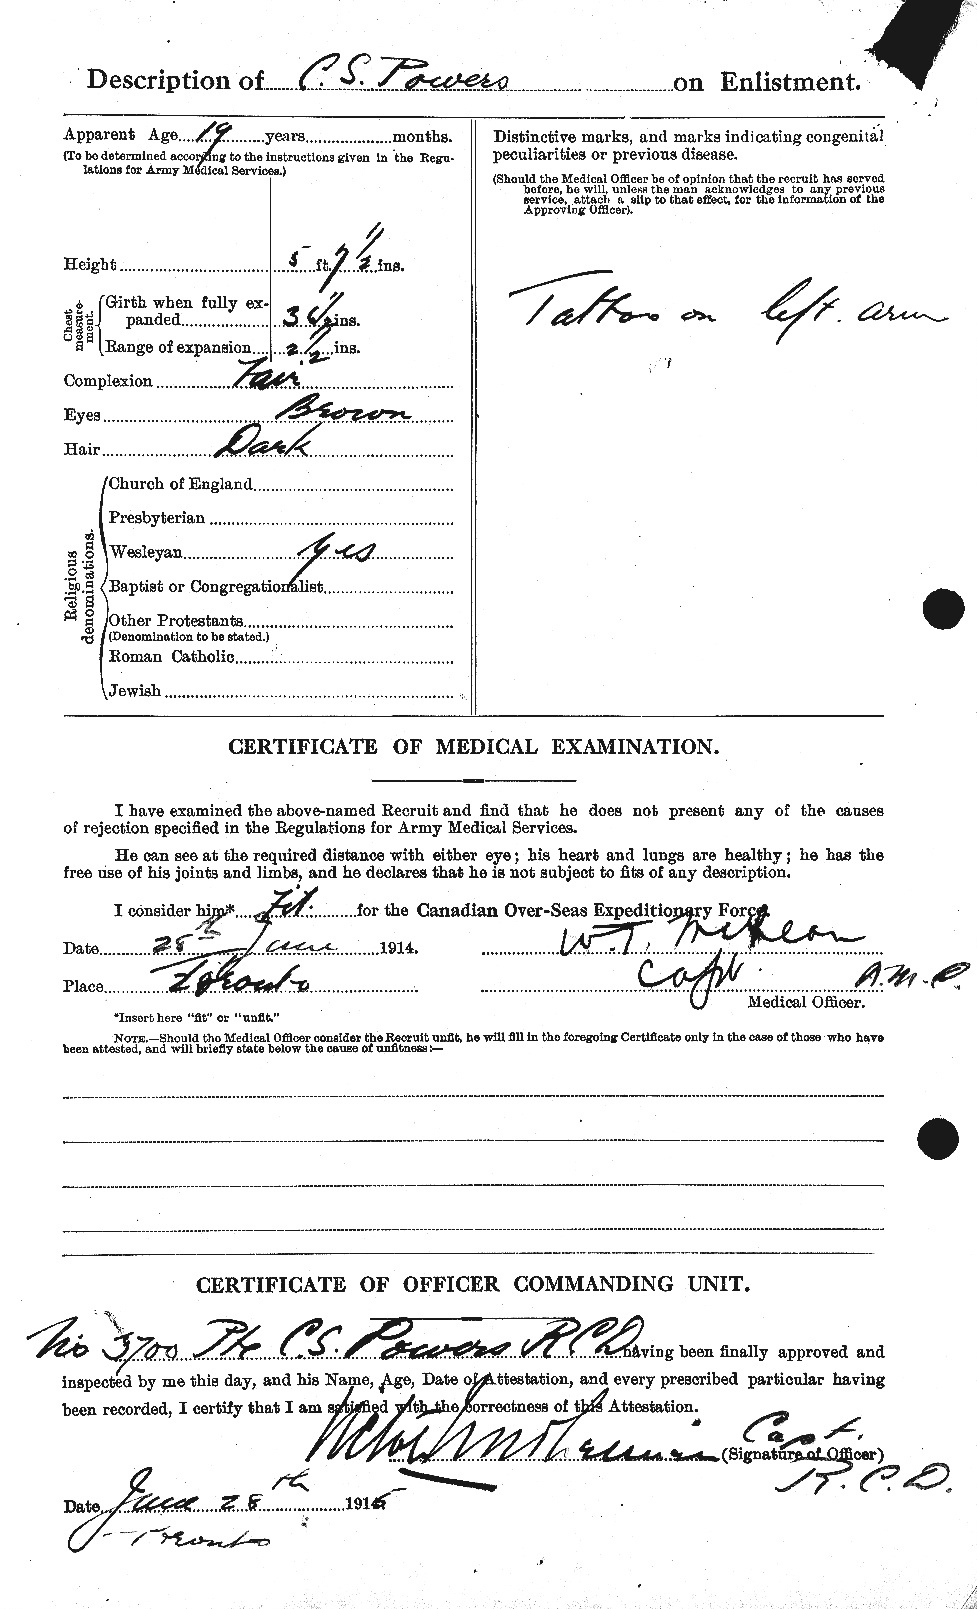 Description of C. S. Powers on Enlistment.
Apparent Age 19 years months.
(To be determined according to the instructions given in the Regu-
lations for Army Medical Services.)
Height 5 ft. 7 1/2 ins.
Chest measure-ment.
Girth when fully ex-
panded ins.
Range of expansion 2 1/2 ins.
Complexion Fair
Eyes Brown
Hair Dark
Religious denominations.
Church of England
Presbyterian
Wesleyan yes
Baptist or Congregationalist
Other Protestants
(Denomination to be stated.)
Roman Catholic
Jewish
Distinctive marks, and marks indicating congenital
peculiarities or previous disease.
(Should the Medical Officer be of opinion that the recruit has served
before, he will, unless the man acknowledges to any previous
service, attach a slip to that effect, for the information of the
Approving Officer).
Tattoo on left arm
CERTIFICATE OF MEDICAL EXAMINATION.
I have examined the above-named Recruit and find that he does not present any of the causes
of rejection specified in the Regulations for Army Medical Services.
He can see at the required distance with either eye; his heart and lungs are healthy; he has the
free use of his joints and limbs, and he declares that he is not subject to fits of any description.
I consider him* Fit. for the Canadian Over-Seas Expeditionary Force.
Date 25th June 1914. W. T.
Place Toronto Capt. A.M.C.
Medical Officer.
*Insert here "fit" or "unfit."
NOTE.—Should the Medical Officer consider the Recruit unfit, he will fill in the foregoing Certificate only in the case of those who have
been attested, and will briefly state below the cause of unfitness:—
CERTIFICATE OF OFFICER COMMANDING UNIT.
No 5700 Pte C. S. Powers R C D having been finally approved and
inspected by me this day, and his Name, Age, Date of Attestation, and every prescribed particular having
been recorded, I certify that I am satisfied with the correctness of this Attestation.
Capt.
(Signature of Officer)
R. C. D.
Date June 28th 1915
Toronto